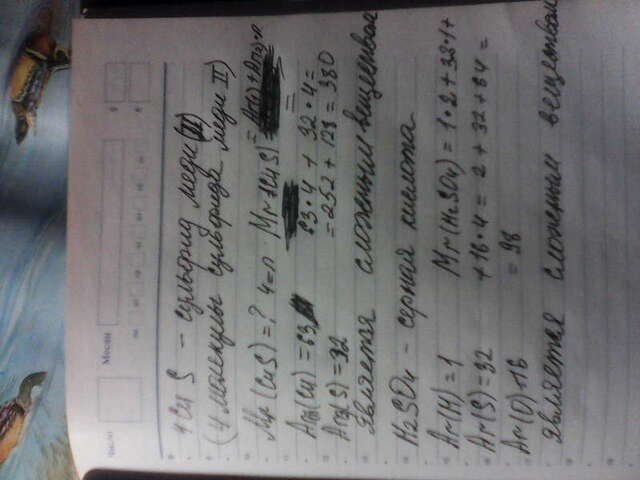 Число
Месяц
4CuS - сульфид меди (II)
(4 молекулы сульфида меди II)
Mr (CuS) = ? 4=n Mr 4(CuS) = Ar(1)+Ar(2)·n
Ar(1)(Cu) = 63 63·4 + 32·4 =
Ar(2)(S) = 32 = 252 + 128 = 380
Является сложным веществом
H2SO4 - серная кислота
Ar(H) = 1 Mr(H2SO4) = 1·2 + 32·1 +
Ar(S) = 32 + 16·4 = 2 + 32 + 64 =
Ar(O) = 16 = 98
Является сложным веществом